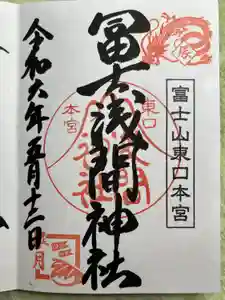 富士山東口本宮
冨士浅間神社
東口
本宮
令和六年五月十二日